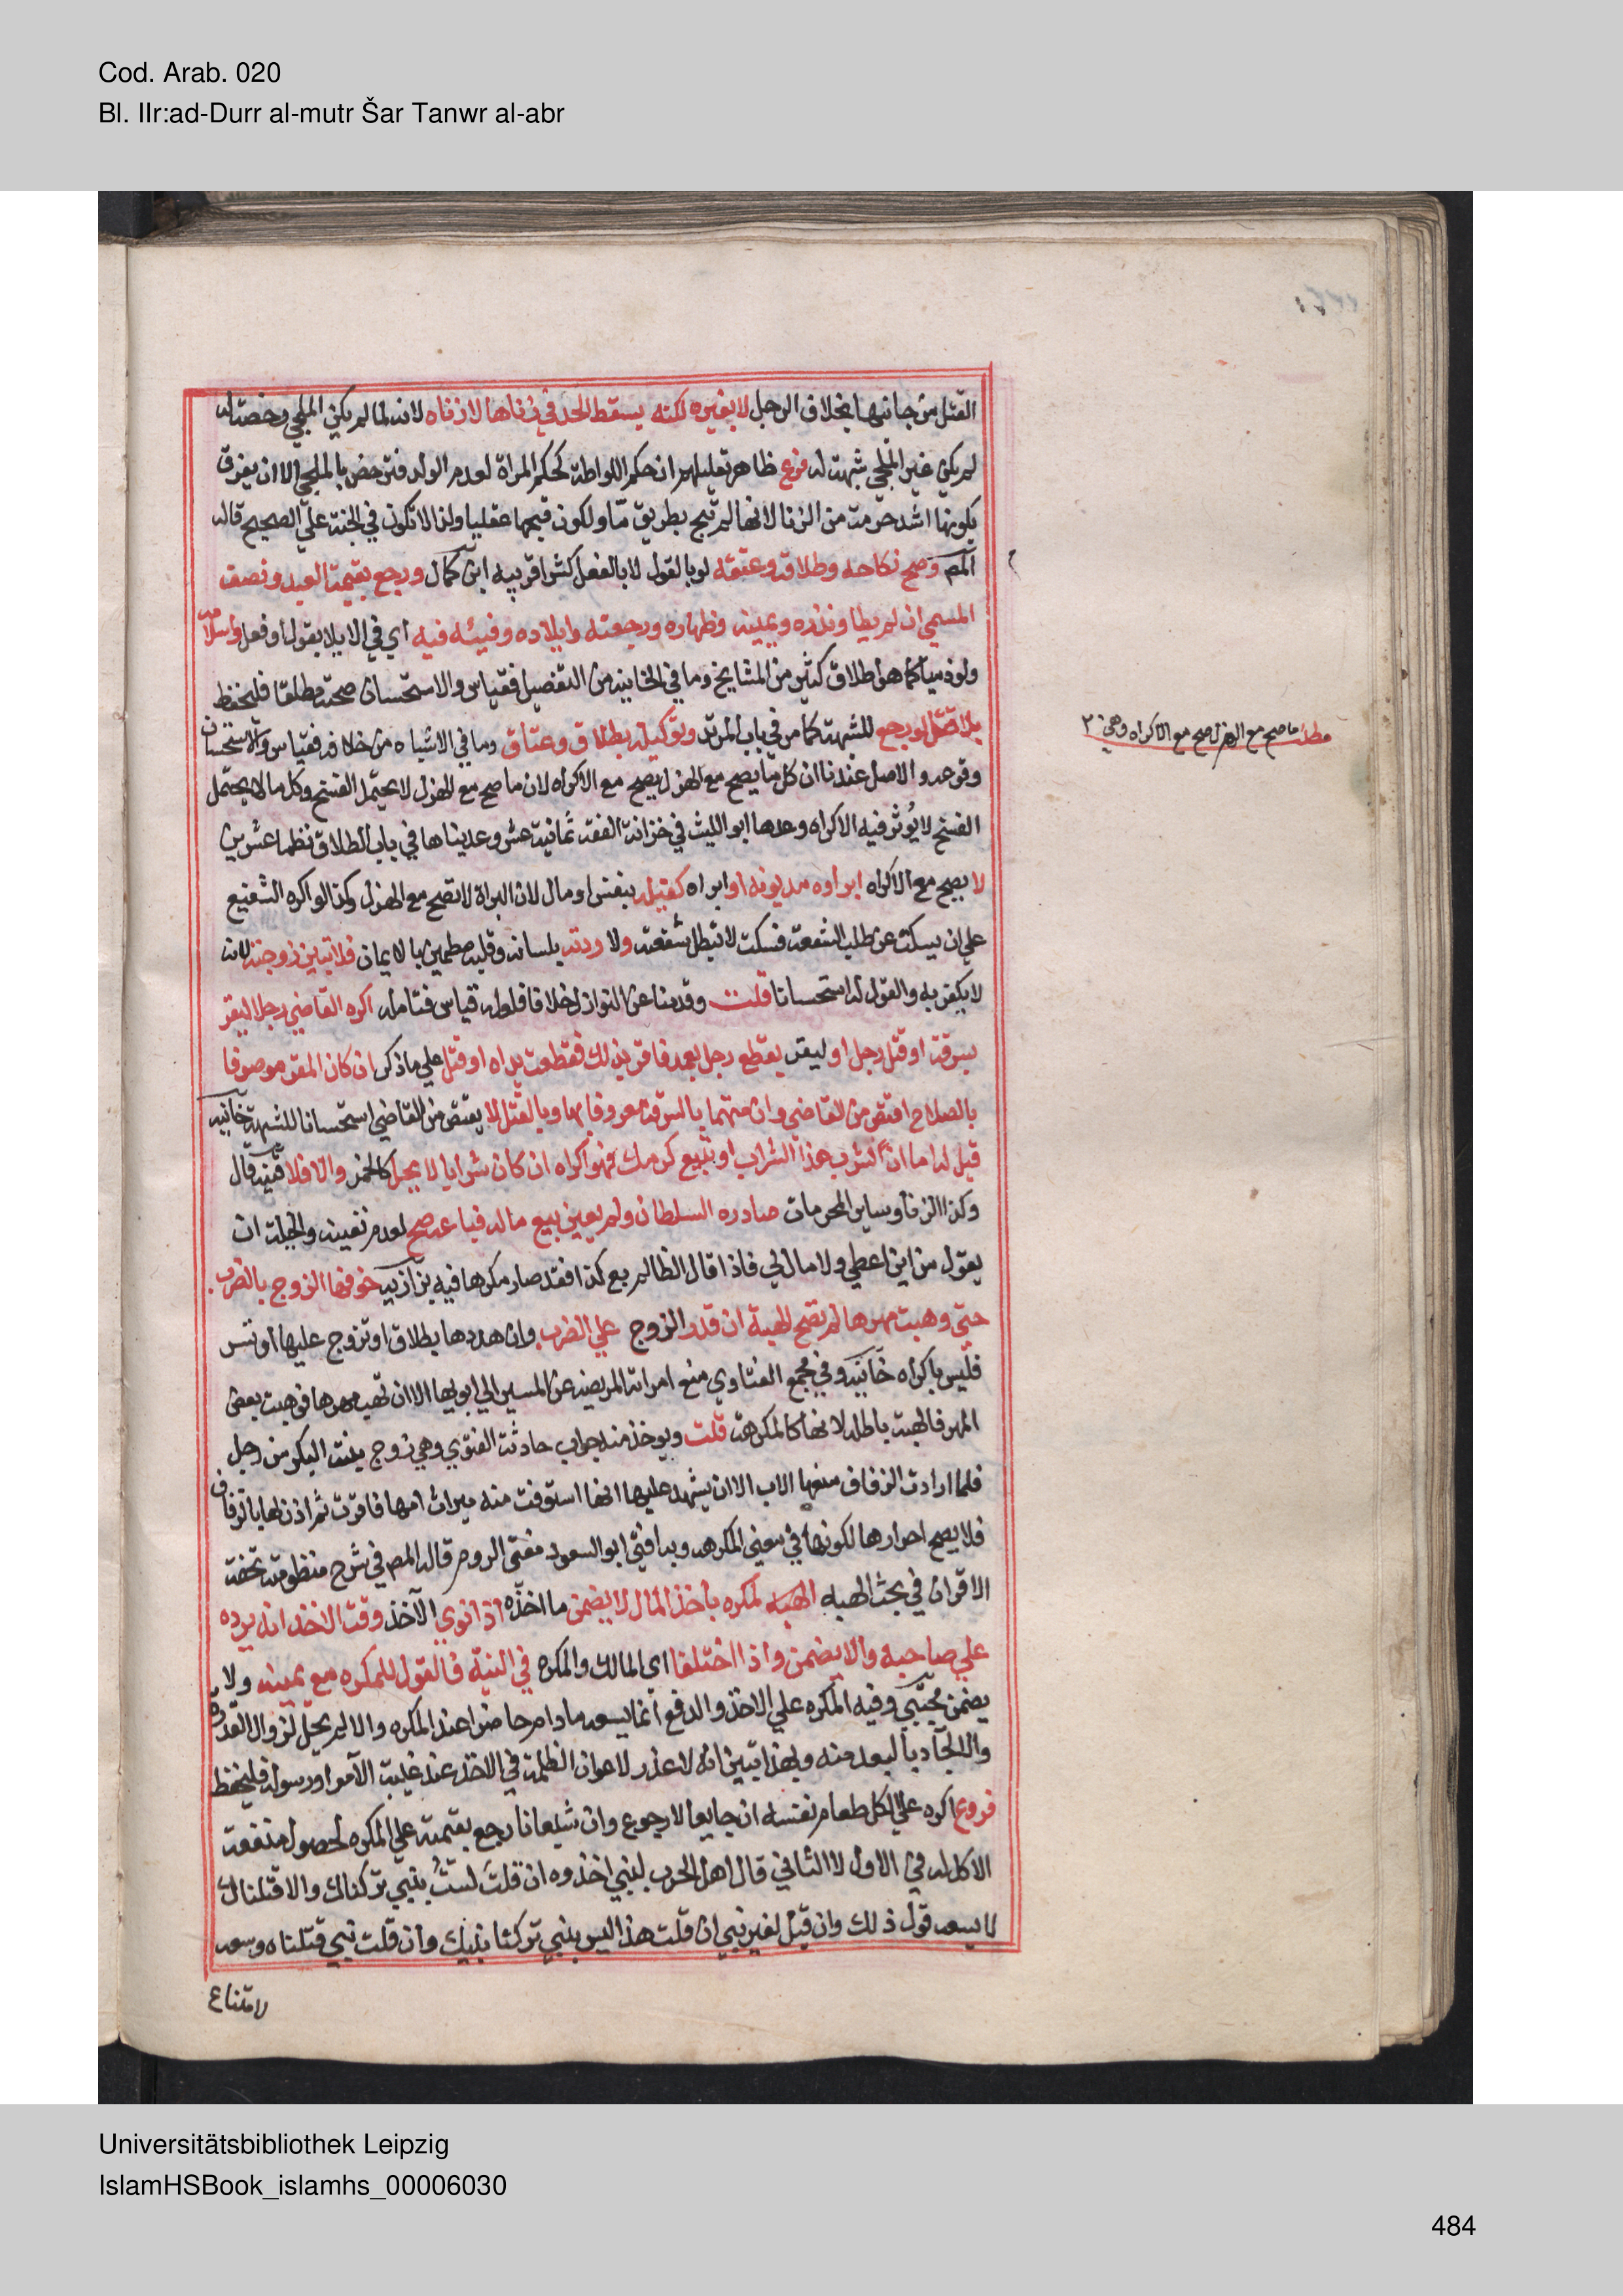 Cod. Arab. 020
Bl. IIr:ad-Durr al-mutr Šar Tanwr al-abr
القتل من جانبها بخلاف الرجل لا بغيره لكنه يسقط الحد في زناها لا زناه لانه لما لم يكن الملجي رخصة له
لم يكن غير الملجي شبهة له فرع ظاهر تعليلهم ان حكم اللواطة كحكم المراة لعدم الولد فترخص بالملجي الا ان يفرق
بكونها اشد حرمة من الزنا لانها لم تبح بطريق ما ولكون قبحها عقليا ولذا لا تكون في الجنة على الصحيح قاله
المص وصح نكاحه وطلاقه وعتقه لو بالقول لا بالفعل كشرا قريبه ابن كمال ورجع بقيمة العبد ونصف
المسمي ان لم يطا ونذره ويمينه وظهاره ورجعته وايلاده وفيئه فيه اي في الايلا بقول او فعل واسلامه
ولو ذميا كما هو اطلاق كثير من المشايخ وما في الخانية من التفصيل فقياس والاستحسان صحته مطلقا فليحفظ
بلا قتل لو رجع للشبهة كما مر في باب المرتد وتوكيله بطلاق وعتاق وما في الاشباه من خلافه فقياس والاستحسان
وقوعه والاصل عندنا ان كل ما يصح مع الهزل يصح مع الاكراه لان ما صح مع الهزل لا يحتمل الفسخ وكل ما لا يحتمل
الفسخ لا يُوثر فيه الاكراه وعدها ابو الليث في خزانة الفقه ثمانية عشر وعديناها في باب الطلاق نظما عشرين
لا يصح مع الاكراه ابراوه مديونه او ابراه كفيله بنفس او مال لان البراة لا تصح مع الهزل وكذا لو اكره الشفيع
علي ان يسكت عن طلب الشفعة فسكت لا تبطل شفعته ولا ردته بلسانه وقلبه مطمين بالايمان فلا تبين زوجته لانه
لا يكفر به والقول له استحسانا قلت وقدمنا عن النوازل خلافه فلعله قياس فتامله اكره القاضي رجلا ليقر
بسرقة او قتل رجل او ليقر بقطع رجل بعمد فاقر بذلك فقطعت يداه او قتل علي ما ذكر ان كان المقر موصوفا
بالصلاح اقتص من القاضي وان متهما بالسرقة معروفا بها وبالقتل لا يقتص من القاضي استحسانا للشبهة خانيه
قيل له اما ان تشرب هذا الشراب او تبيع كرمك فهو اكراه ان كان شرابا لا يحل كالخمر والا فلا قنيه قال
وكذا الزنا وساير المحرمات صادره السلطان ولم يعين بيع ماله فباعه صح لعدم تعيينه والحيلة ان
يقول من اين اعطي ولا مال لي فاذا قال الظالم بع كذا فقد صار مكرها فيه بزازيه خوفها الزوج بالضرب
حتى وهبت مهرها لم تصح الهبة ان قدر الزوج علي الضرب وان هددها بطلاق او تزوج عليها او تسر
فليس باكراه خانيه وفي مجمع الفتاوي منع امراته المريضه عن المسير الي ابويها الا ان تهبه مهرها فوهبت بعض
المهر فالهبة باطله لانها كالمكرهة قلت ويوخذ منه جواب حادثة الفتوي وهي زوج بنته البكر من رجل
فلما ارادت الزفاف منعها الاب الا ان يشهد عليها انها استوفت منه ميراث امها فاقرت ثم اذن لها بالزفاف
فلا يصح اقرارها لكونها في معني المكرهه وبه افتي ابو السعود مفتي الروم قاله المص في شرح منظومته تحفة
الاقران في بحث الهبه الهبه لمكره باخذ المال لا يضمن ما اخذه اذا نوي الآخذ وقت الاخذ انه يرده
علي صاحبه والا يضمن واذا اختلفا اي المالك والمكره في النية فالقول للمكره مع يمينه ولا
يضمن مجتبي وفيه المكره علي الاخذ والدفع انما يسعه مادام حاضرا عند المكره والا لم يحل لزوال القدرة
والالجا بالبعد منه وبهذا تبين انه لا عذر لاعوان الظلمة في الاخذ عند غيبة الآمر او رسوله فليحفظ
فروع اكره علي اكل طعام نفسه ان جايعا لا رجوع وان شبعانا رجع بقيمته علي المكره لحصول منفعة
الاكل له في الاول لا الثاني قال اهل الحرب لنبي اخذوه ان قلتَ لستُ بنبي تركناك والا قتلناك
لا يسعه قول ذلك وان قيل لغير نبي ان قلت هذا ليس بنبي تركنا نبيك وان قلت نبي قتلناه وسعه
لامتناع
مطلب ما صح مع الهزل صح مع الاكراه وهي ٢
Universitätsbibliothek Leipzig
IslamHSBook_islamhs_00006030
484